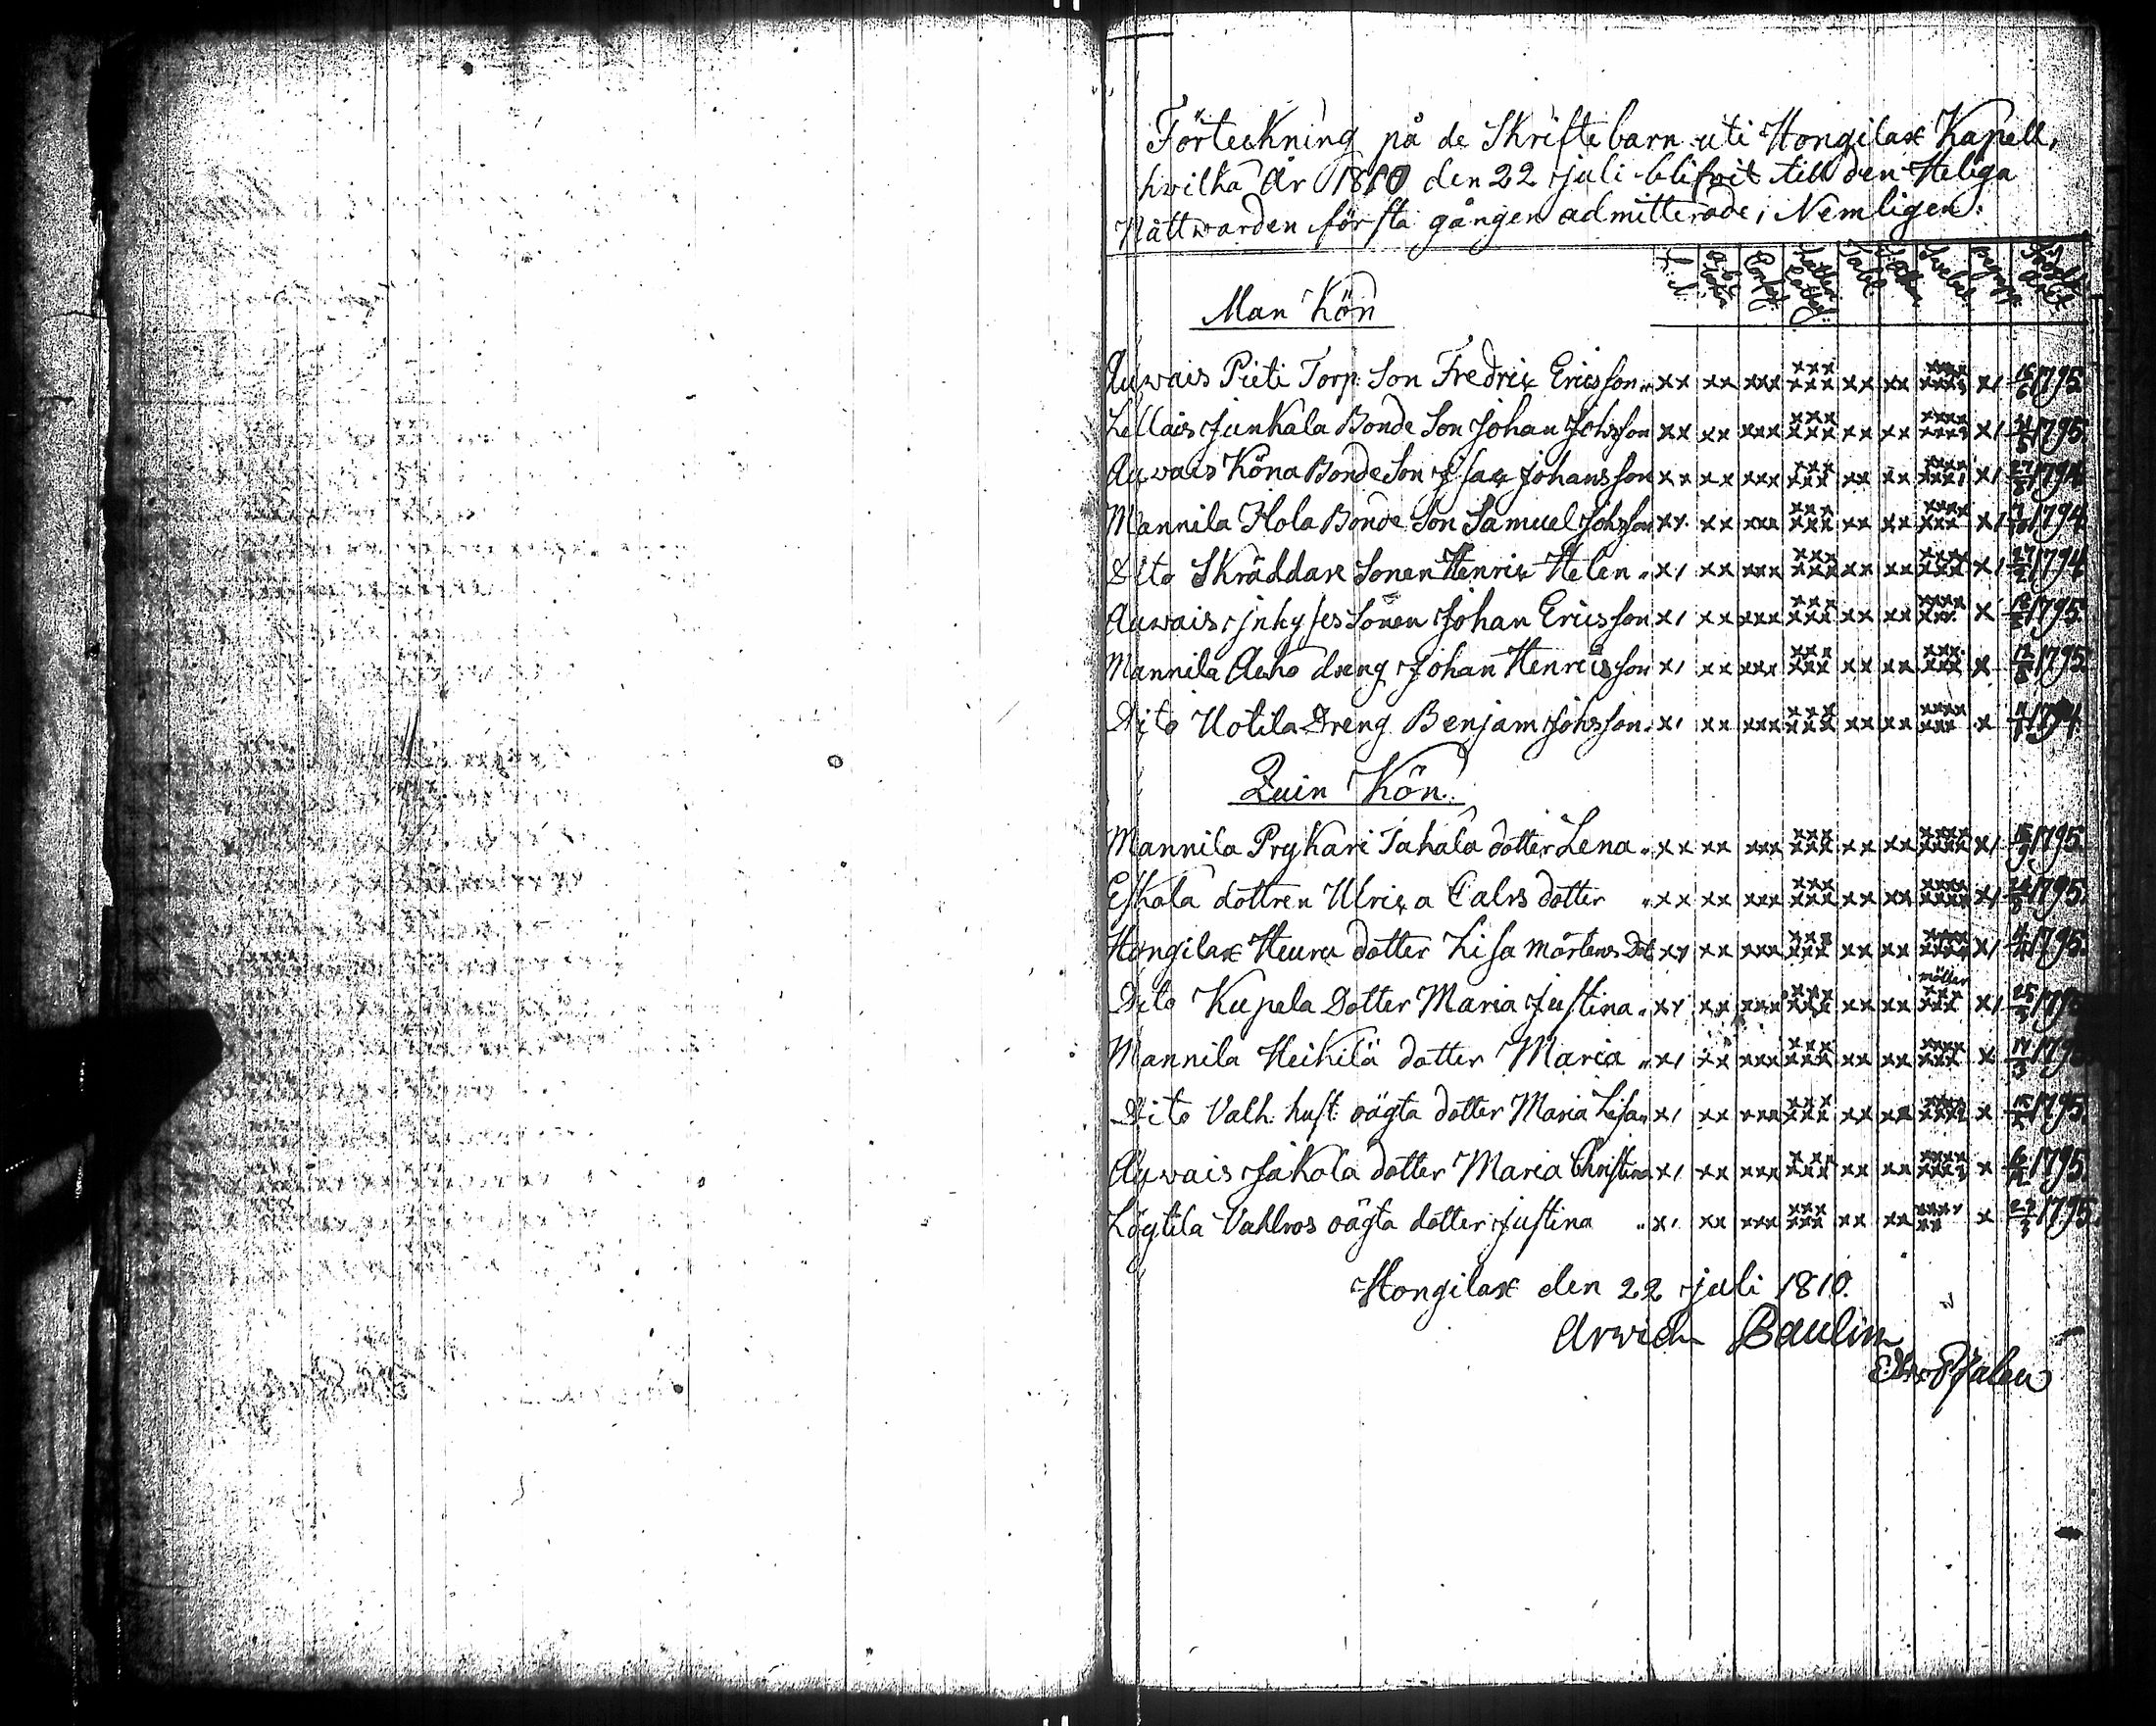 Förteckning på de Skriftebarn uti Hongilax Kapell,
hvilka År 1810 den 22 juli blifvit till den Heliga
Nattwarden första gången admitterade; Nemligen:
Man Kön
Auwais Pieti Torp. Son Fredrix Ericsson xx xx xxx xxx xxx xx xx xxxx x/ 15/6 1795
Lellais Junkala Bonde Son Johan Johsson xx xx xxx xxx xxx xx xx xxxx x/ 1795
Auwais Köna Bonde Son Isax Johansson xx xx xxx xxx xxx xx xx xxxx x/ 27/8 1794
Mannila Hola Bonde Son Samuel Johsson xx xx xxx xxx xxx xx xx xxxx x/ 1794
Dito Skräddare Sonen Henrix Helen x/ xx xxx xxx xxx xx xx xxxx x/ 1794
Auwais inhyses Sonen Johan Ericsson x/ xx xxx xxx xxx xx xx xxxx x 1795
Mannila dreng Johan Henricsson x/ xx xxx xxx xxx xx xx xxx x 1795
Dito Uotila Dreng Benjam Johsson x/ xx xxx xxx xxx xx xx xxxx xxx x 1794
Quin Kön.
Mannila Prykari Jahala dotter Lena xx xx xxx xxx xxx xx xx xxxx x/ 1795
Eskola dottren Ulrixa Calrs dotter xx xx xxx xxx xxx xx xx xxxx x/ 1795
Hongilax Heuru dotter Lisa Mårtens Dot xx xx xxx xxx xxx xx xx xxxx x/ 1795
Dito Kupela Dotter Maria Justina xx xx xxx xxx xxx xx xx xxx xxx x/ 25/3 1795
Mannila Heikilä dotter Maria x/ xx xxx xxx xxx xx xx xxxx xxx x 1795
Dito Valh. hust. oägta dotter Maria Lisa x/ xx xxx xxx xxx xx xx xxxx x 1795
Auwais Jakola dotter Maria Christina x/ xx xxx xxx xxx xx xx xxxx x 1795
Lögtila Vahlros oägta dotter Justina x/ xx xxx xxx xxx xx xx xxxx xx x 1795
Hongilax den 22 juli 1810.
Arwid Paulin